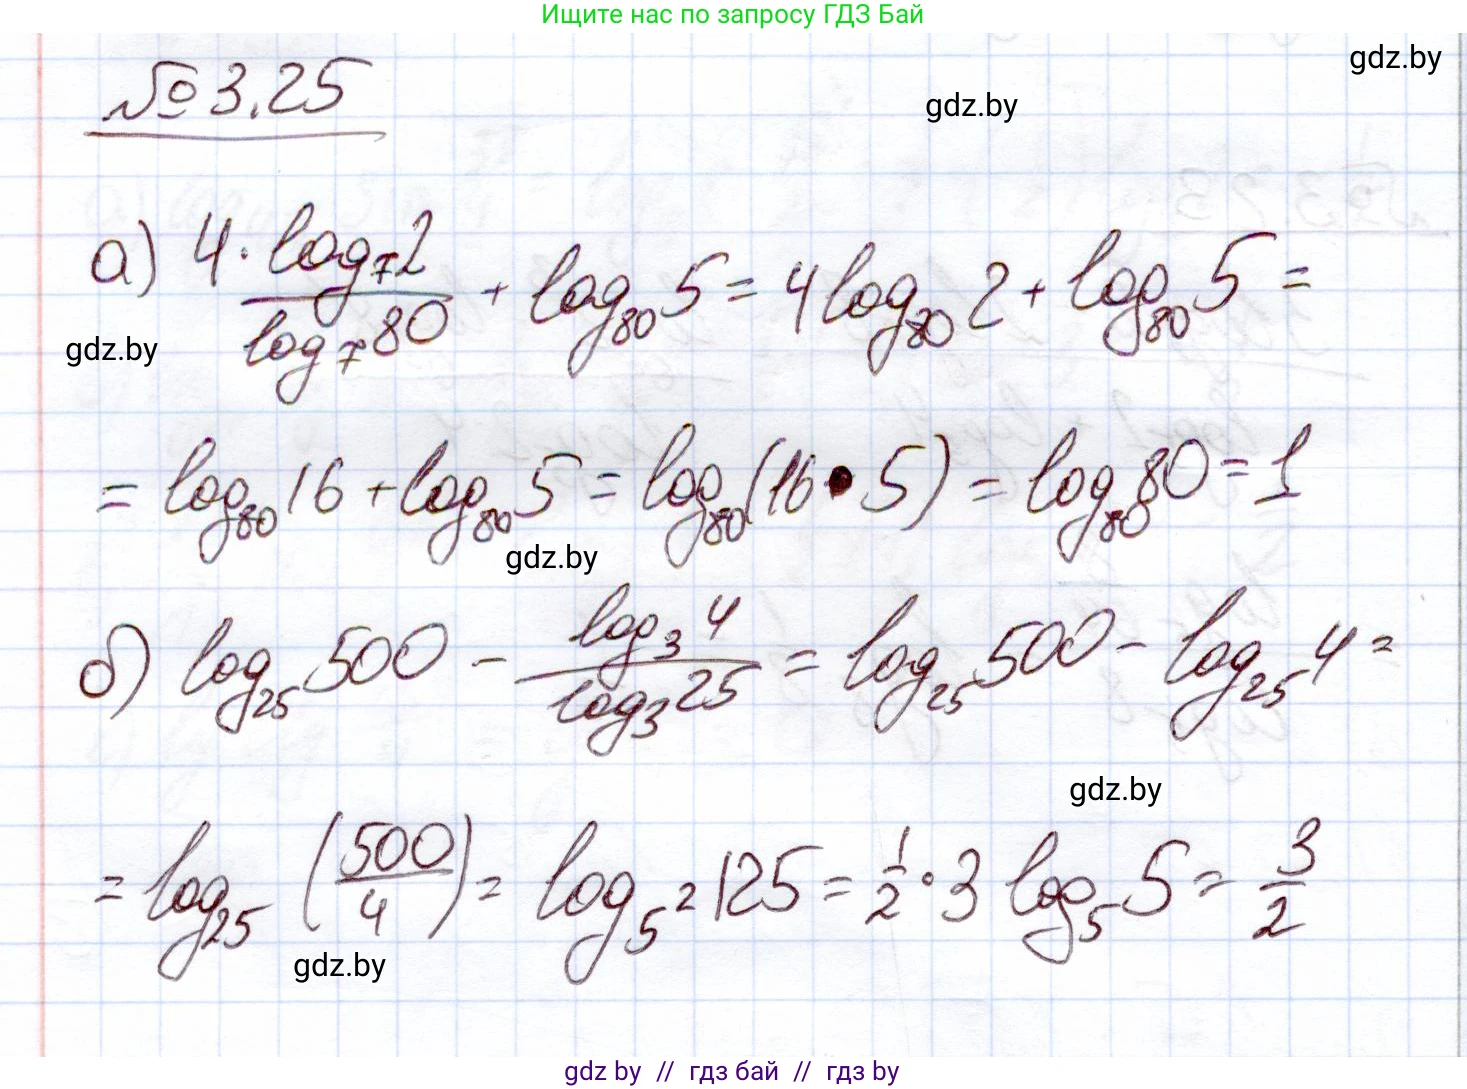 Ищите нас по запросу ГДЗ Бай
gdz.by
№ 3.25
gdz.by
а) 4 · log₇2 / log₇80 + log₈₀5 = 4log₈₀2 + log₈₀5 =
gdz.by
= log₈₀16 + log₈₀5 = log₈₀(16 • 5) = log₈₀80 = 1
gdz.by
б) log₂₅500 - log₃4 / log₃25 = log₂₅500 - log₂₅4 =
gdz.by
= log₂₅(500/4) = log₅²125 = 1/2 · 3 log₅5 = 3/2
gdz.by
gdz by // гдз бай // гдз by